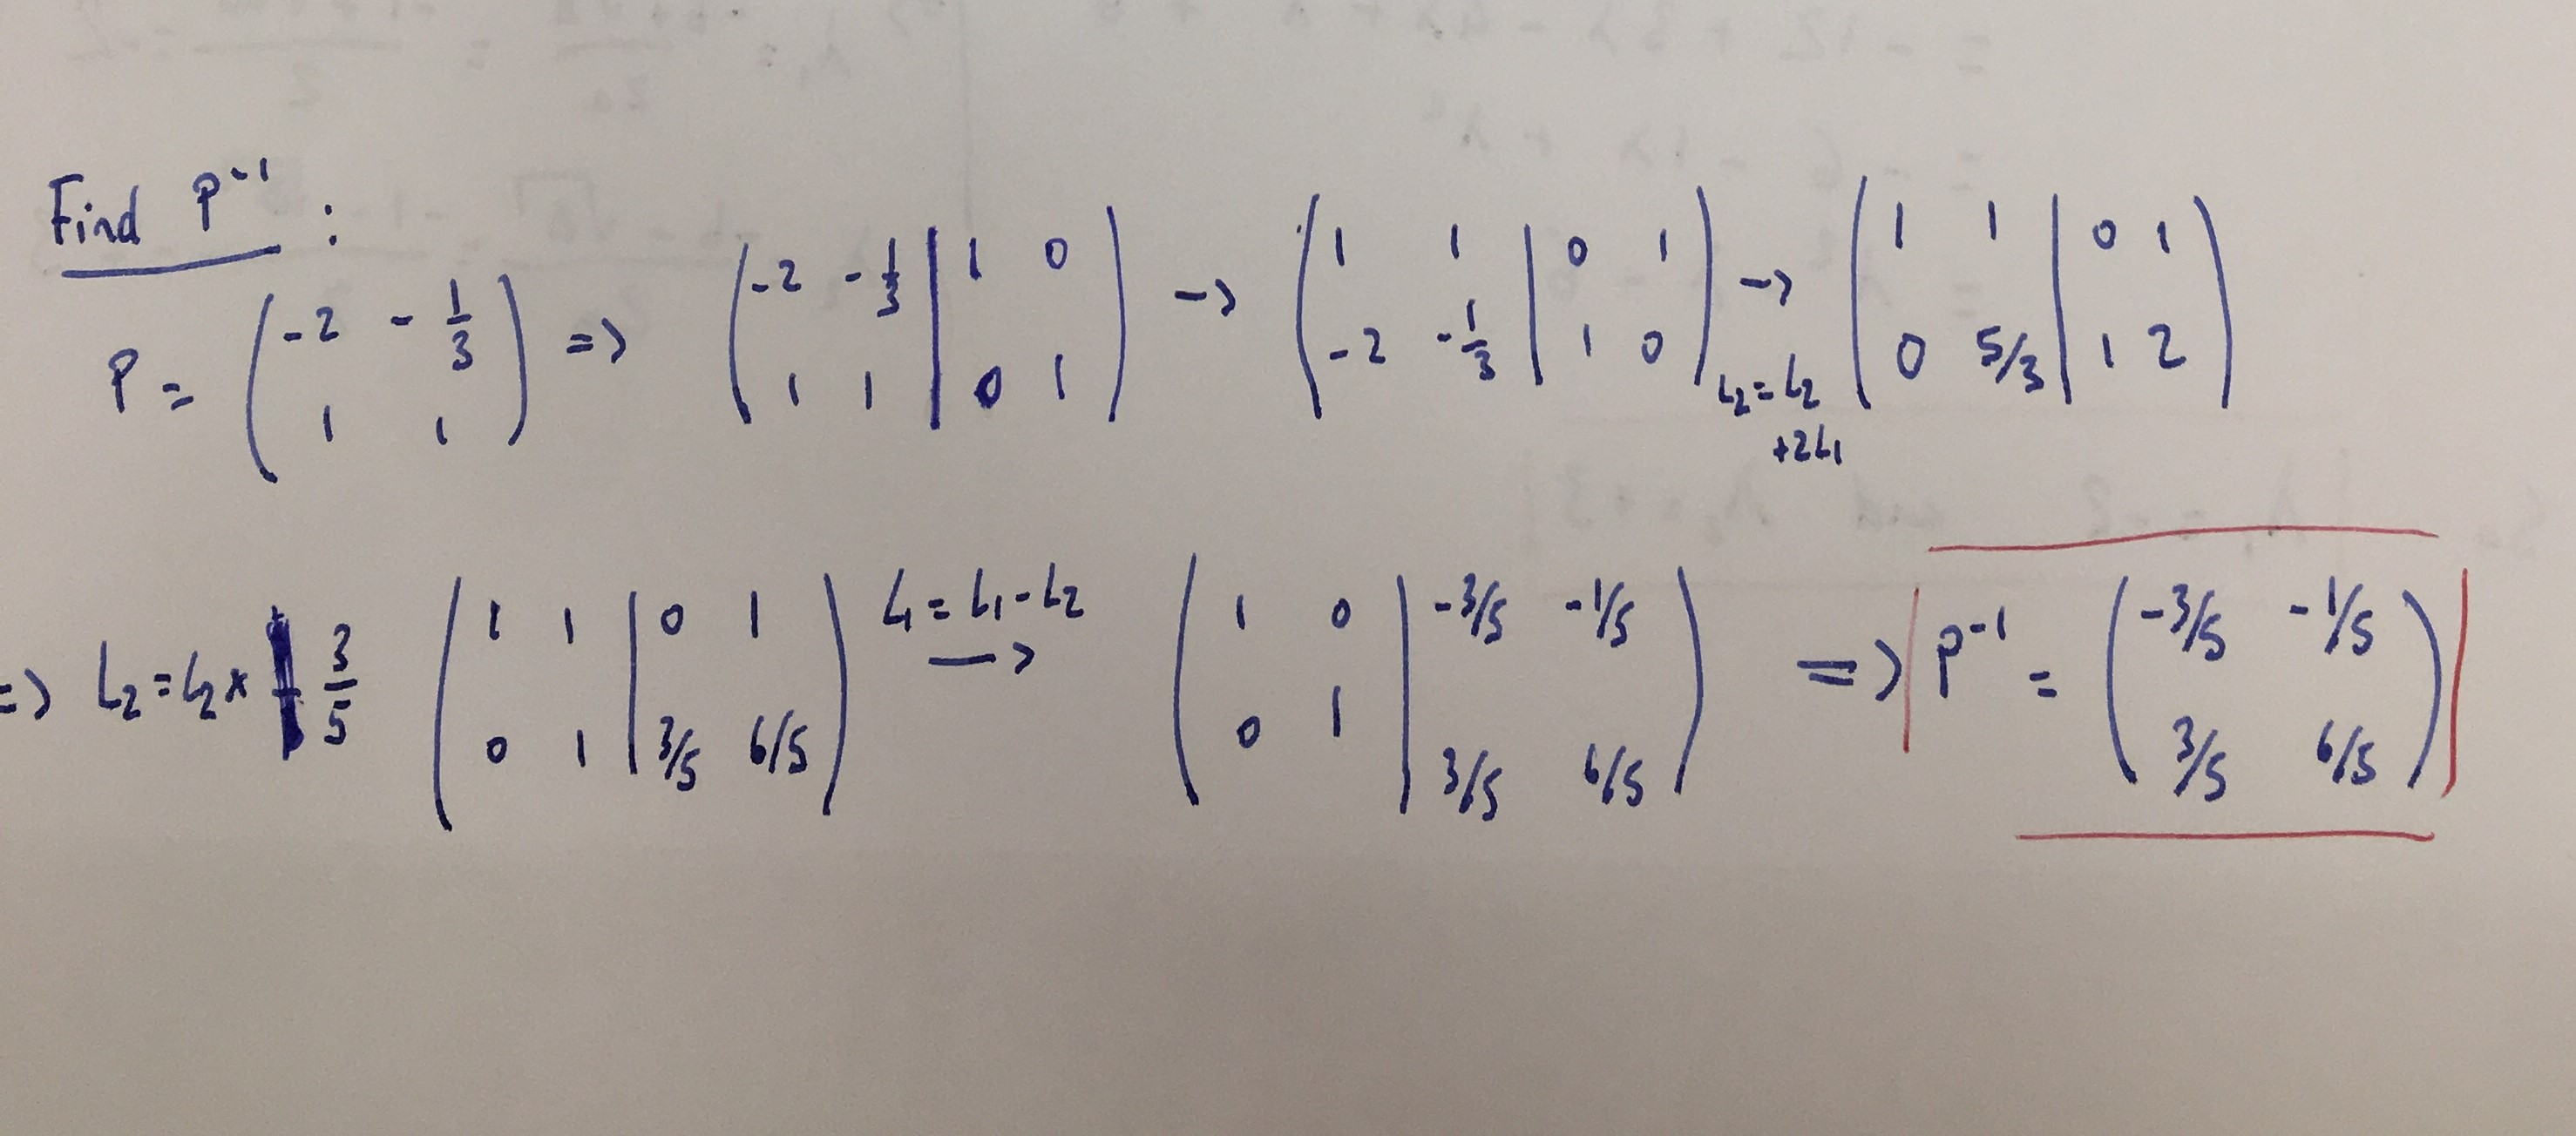 Find P⁻¹ :
P = ( -2 -1/3 ; 1 1 ) => ( -2 -1/3 | 1 0 ; 1 1 | 0 1 ) -> ( 1 1 | 0 1 ; -2 -1/3 | 1 0 ) -> L₂=L₂+2L₁ ( 1 1 | 0 1 ; 0 5/3 | 1 2 )
=> L₂=L₂× 3/5 ( 1 1 | 0 1 ; 0 1 | 3/5 6/5 ) L₁=L₁-L₂ -> ( 1 0 | -3/5 -1/5 ; 0 1 | 3/5 6/5 ) => P⁻¹ = ( -3/5 -1/5 ; 3/5 6/5 )